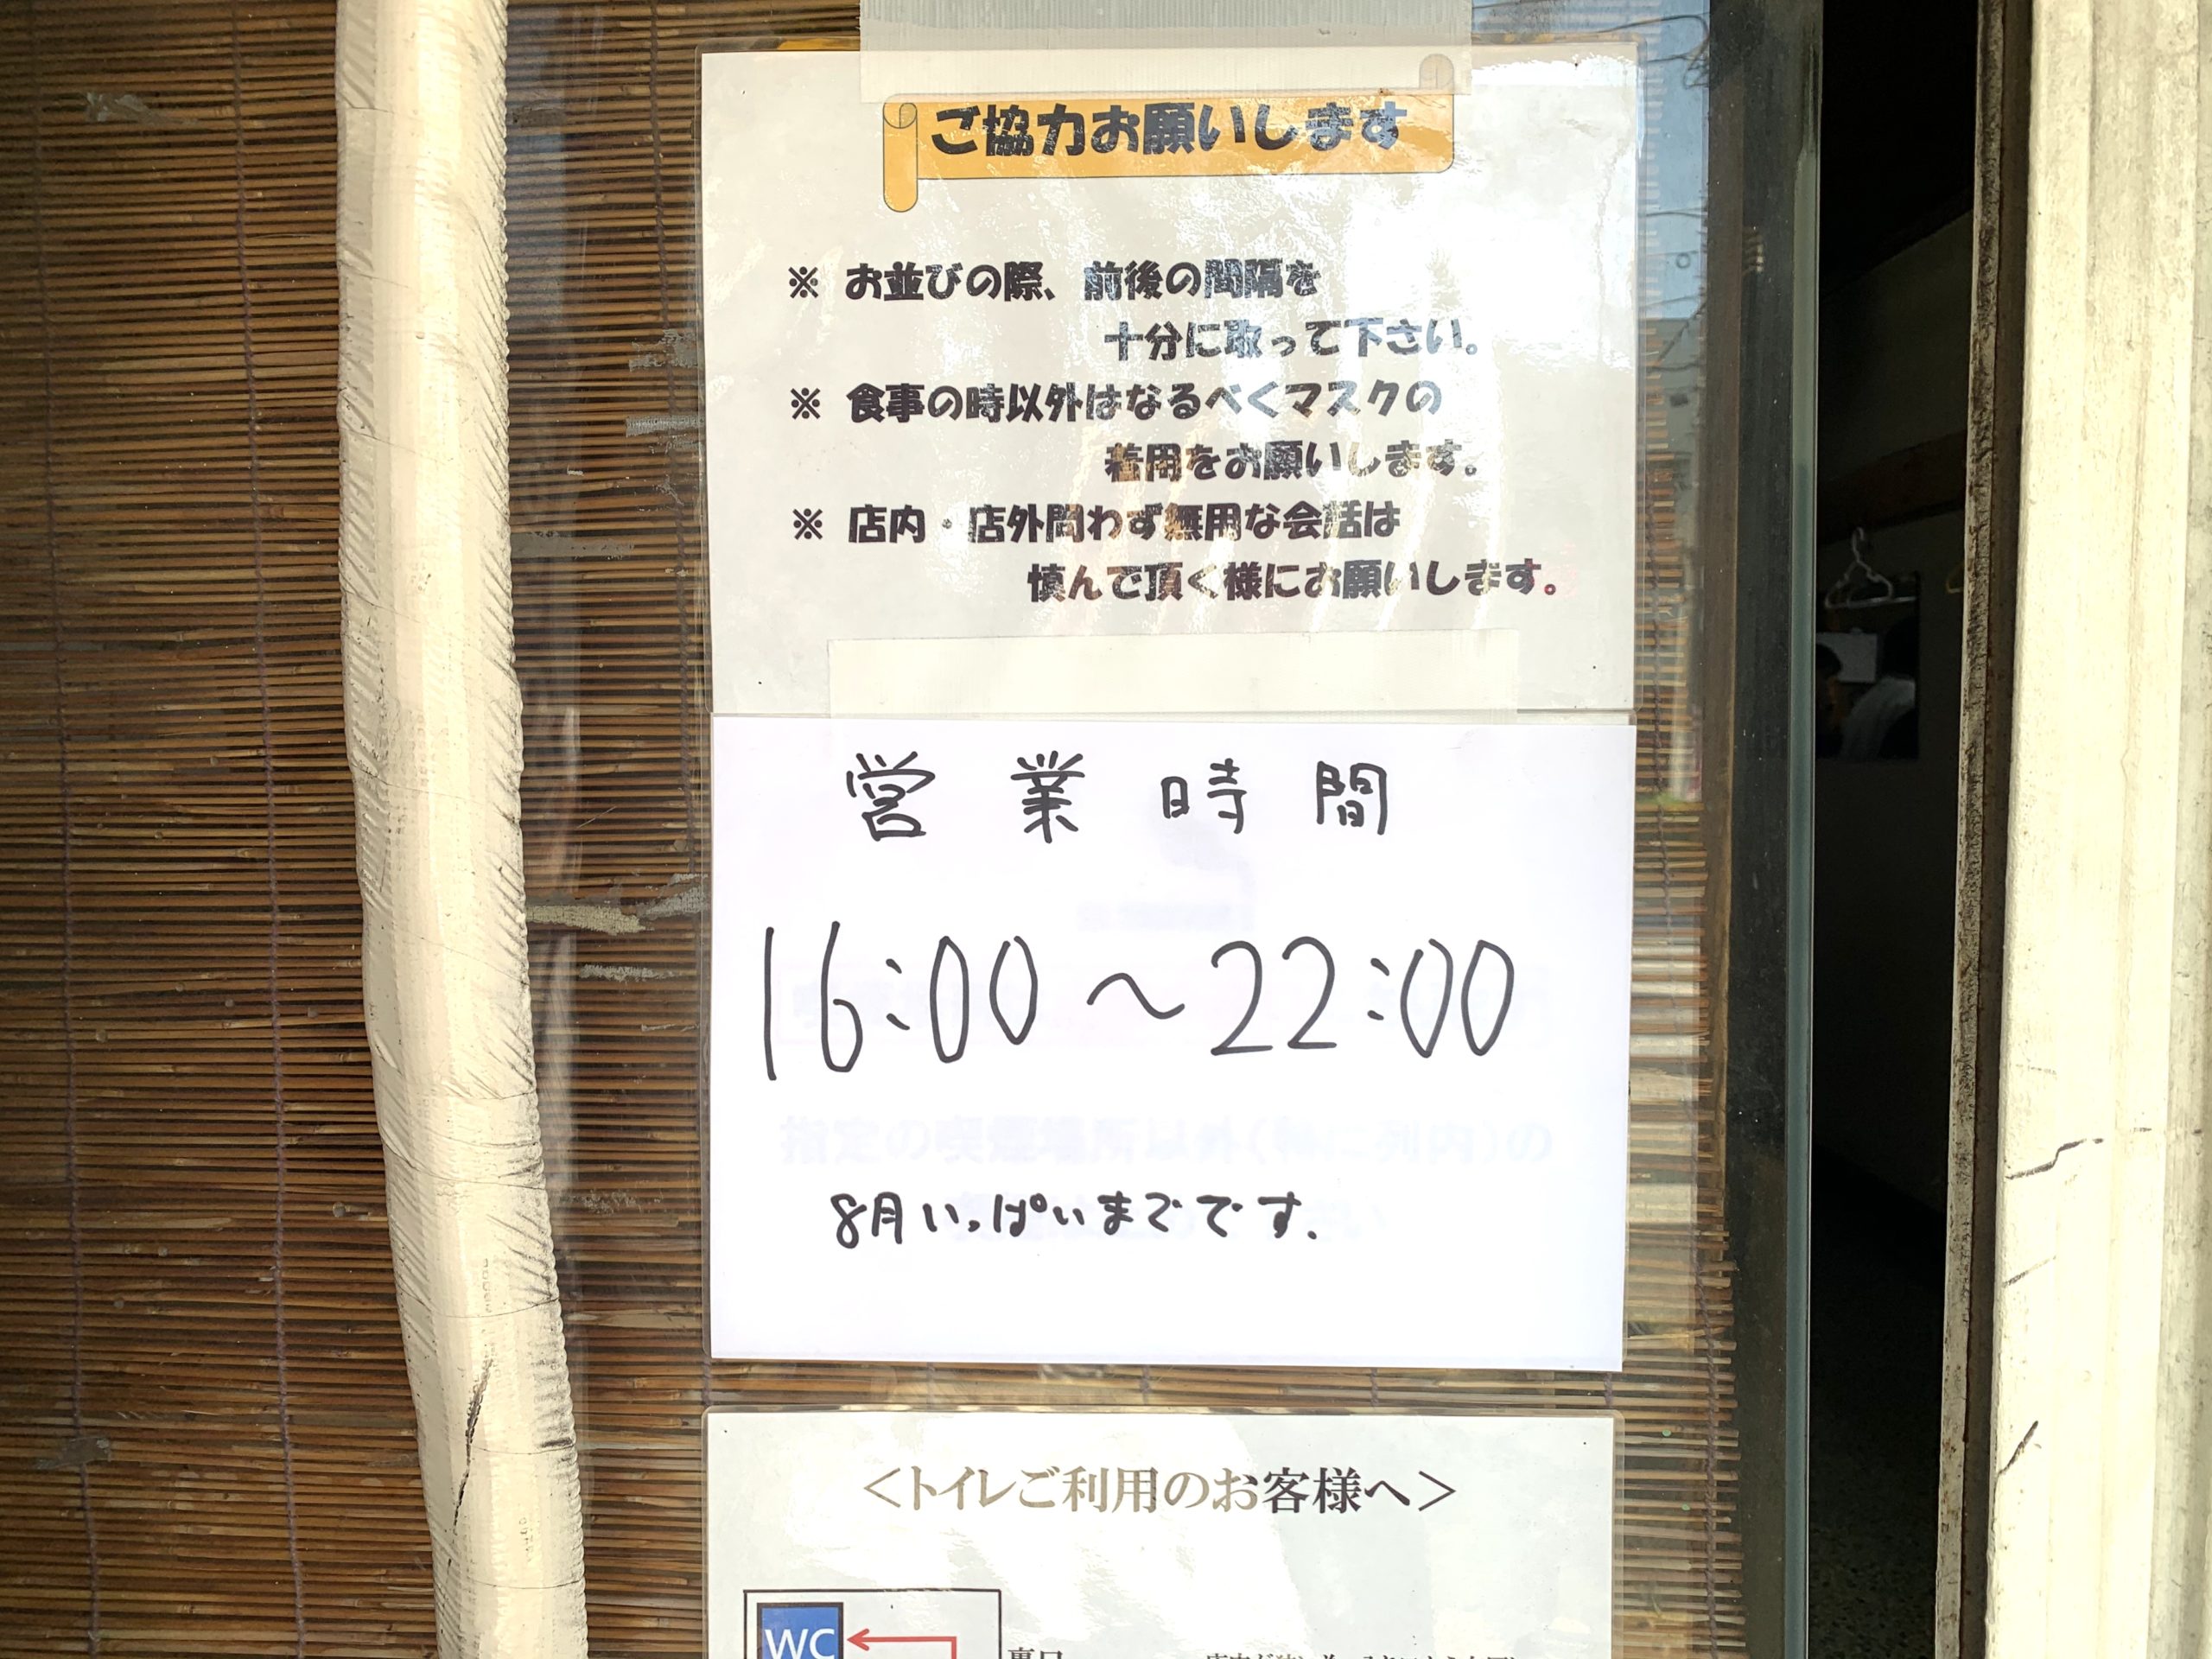 ご協力お願いします
※ お並びの際、前後の間隔を
十分に取って下さい。
※ 食事の時以外はなるべくマスクの
着用をお願いします。
※ 店内・店外問わず無用な会話は
慎んで頂く様にお願いします。
営業時間
16:00～22:00
指定の喫煙場所以外(特に列内)の
8月いっぱいまでです.
＜トイレご利用のお客様へ＞
WC
裏口